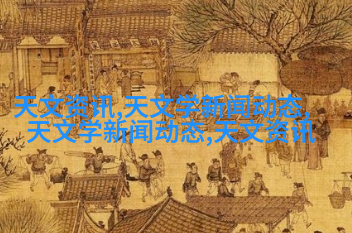 天文资讯,天文学新闻动态,
天文学新闻动态,天文资讯